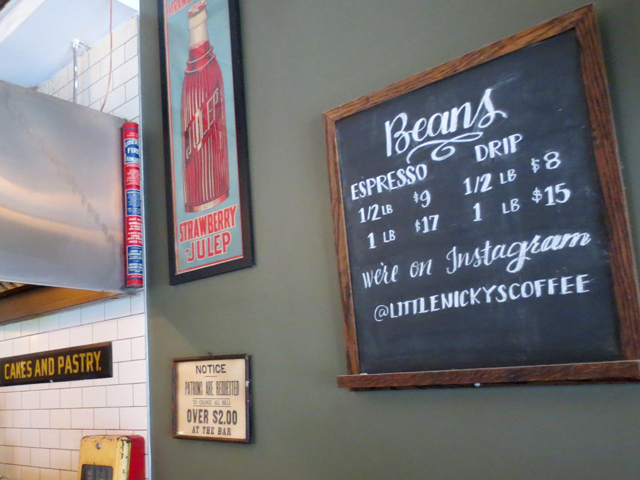 JULEP
STRAWBERRY
JULEP
FIRE
CAKES AND PASTRY.
NOTICE
PATRONS ARE REQUESTED
TO CHANGE ALL BILLS
OVER $2.00
AT THE BAR
Beans
ESPRESSO
1/2 LB $9
1 LB $17
DRIP
1/2 LB $8
1 LB $15
we're on Instagram
@LITTLENICKYSCOFFEE